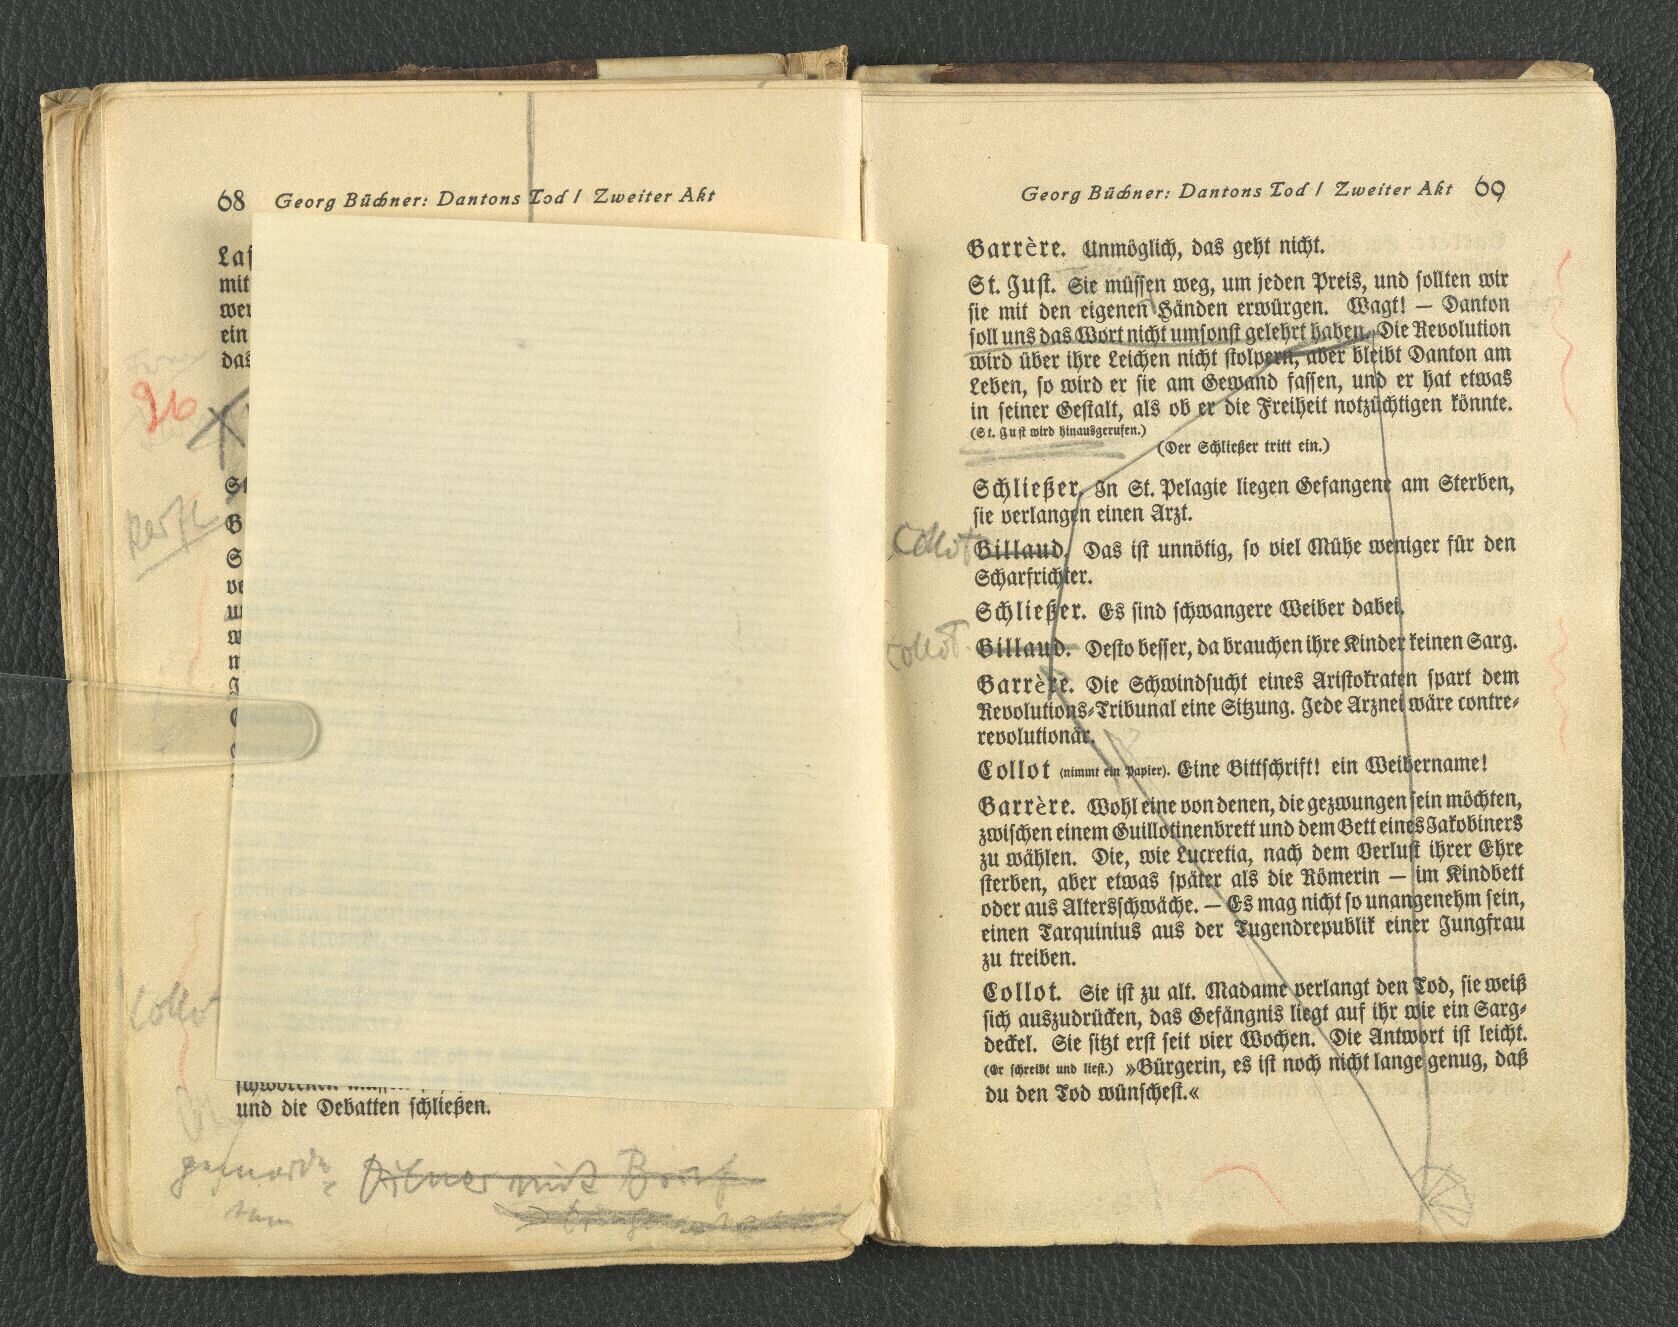 68 Georg Büchner: Dantons Tod / Zweiter Akt
mit
ein
das
96
Collot
und die Debatten schließen.
Georg Büchner: Dantons Tod / Zweiter Akt 69
Barrère. Unmöglich, das geht nicht.
St. Just. Sie müssen weg, um jeden Preis, und sollten wir
sie mit den eigenen Händen erwürgen. Wagt! — Danton
soll uns das Wort nicht umsonst gelehrt haben. Die Revolution
wird über ihre Leichen nicht stolpern, aber bleibt Danton am
Leben, so wird er sie am Gewand fassen, und er hat etwas
in seiner Gestalt, als ob er die Freiheit notzüchtigen könnte.
(St. Just wird hinausgerufen.)
(Der Schließer tritt ein.)
Schließer. In St. Pelagie liegen Gefangene am Sterben,
sie verlangen einen Arzt.
Collot
Billaud. Das ist unnötig, so viel Mühe weniger für den
Scharfrichter.
Schließer. Es sind schwangere Weiber dabei.
Collot
Billaud. Desto besser, da brauchen ihre Kinder keinen Sarg.
Barrère. Die Schwindsucht eines Aristokraten spart dem
Revolutions-Tribunal eine Sitzung. Jede Arznei wäre contre-
revolutionär.
Collot (nimmt ein Papier). Eine Bittschrift! ein Weibername!
Barrère. Wohl eine von denen, die gezwungen sein möchten,
zwischen einem Guillotinenbrett und dem Bett eines Jakobiners
zu wählen. Die, wie Lucretia, nach dem Verlust ihrer Ehre
sterben, aber etwas später als die Römerin — im Kindbett
oder aus Altersschwäche. — Es mag nicht so unangenehm sein,
einen Tarquinius aus der Tugendrepublik einer Jungfrau
zu treiben.
Collot. Sie ist zu alt. Madame verlangt den Tod, sie weiß
sich auszudrücken, das Gefängnis liegt auf ihr wie ein Sarg-
deckel. Sie sitzt erst seit vier Wochen. Die Antwort ist leicht.
(Er schreibt und liest.) »Bürgerin, es ist noch nicht lange genug, daß
du den Tod wünschest.«